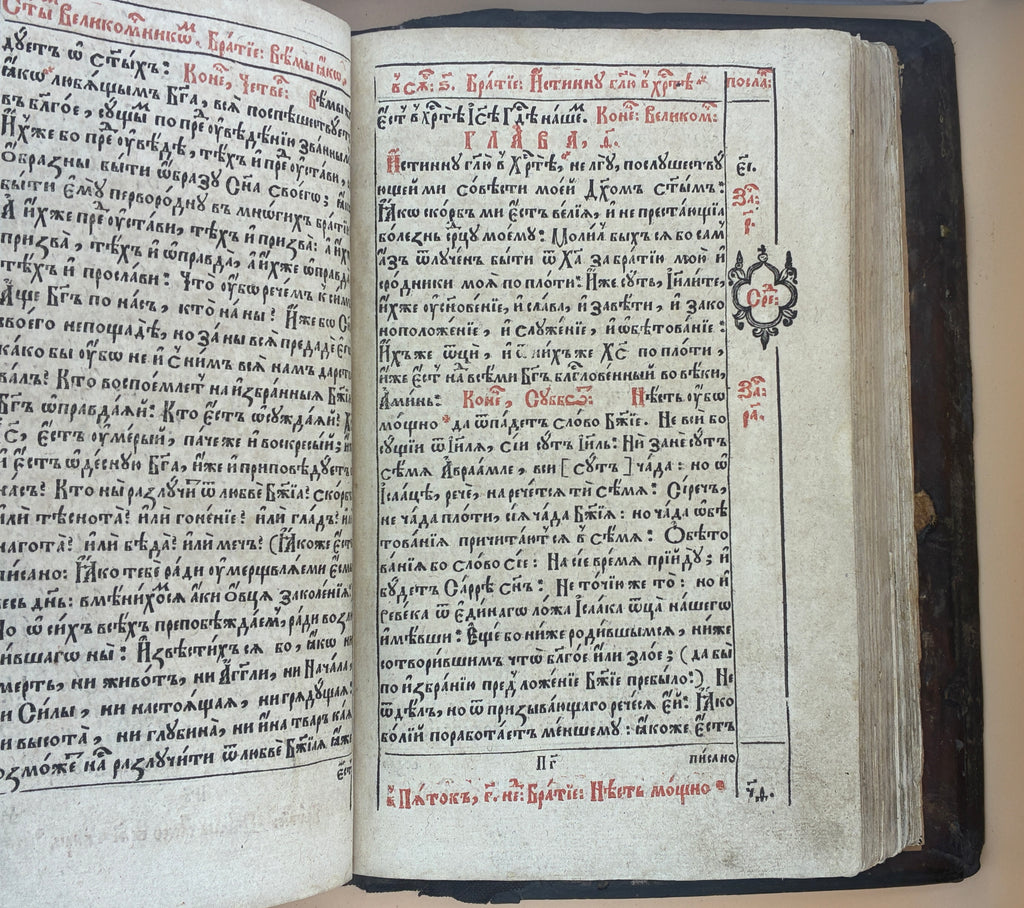 Ст҃ы Великомⷱ҇никѡⷨ. Бра́тїе: Вѣ́мы ꙗ҆́кѡ,
дꙋетъ ѡ҆ ст҃ыхъ: Конеⷰ҇, Четве: Вѣмы
ꙗ҆́кѡ лю́бѧщымъ Бг҃а, всѧ̀ поспѣшествꙋетъ
въ бл҃го́е, сꙋ́щыⷨ по преⷣ ᲂу҆вѣ́дѣнїи зва́нны
И҆́хже бо преⷣ ᲂу҆вѣ́дѣ, тѣ́хъ и҆ преⷣ ᲂу҆ста́ви,
ѻ҆́бразны бы́ти ѡ҆́бразꙋ Сн҃а своегѡ̀;
бы́ти є҆мꙋ̀ перворо́днꙋ въ мно́гихъ бра́тїи
А҆ и҆́хже преⷣ ᲂу҆ста́ви, тѣ́хъ и҆ призва̀: а҆ и҆́хже
призва̀, тѣ́хъ и҆ ѡ҆правда̀, а҆ и҆́хже ѡ҆правда
тѣ́хъ и҆ просла́ви: Что̀ ᲂу҆́бѡ рече́мъ к҆ си́мъ
А҆́ще Бг҃ъ по на́съ, кто̀ на ны̀? И҆́же бѡ
своего̀ непощадѣ̀, но за́ ны всѧ̀ предадѐ є҆го̀
ка́ко бы ᲂу҆́бѡ не и҆ с҆ ни́мъ всѧ̀ на́мъ дарст
ва́лъ? Кто̀ воспое́млетъ на и҆збра́нныѧ Бж҃їѧ
Бг҃ъ ѡ҆правда́ѧй: Кто̀ є҆́стъ ѡ҆сꙋжда́ѧй?
І҆с҃, є҆́стъ ᲂу҆ме́рый, па́че же и҆ воскре́сый;
и҆ є҆́стъ ѡ҆деснꙋ́ю Бг҃а, и҆́же и҆ приповѣ́дꙋетъ
на́съ? Кто̀ ны̀ разлꙋчи́тъ ѿ любвѐ Бж҃їѧ? ско́рбъ
и҆лѝ тѣснота̀? и҆лѝ гоне́нїе? и҆лѝ гла́дъ?
нагота̀? и҆лѝ бѣда̀? и҆лѝ ме́чъ? (Ꙗ҆́коже є҆́стъ
пи́сано: Ꙗ҆́ко тебѐ ра́ди ᲂу҆мерщвлѧ́еми є҆смы
ве́сь дн҃ь: вмѣни́хоⷨсѧ а҆́ки ѻ҆́вцѧ заколе́нїѧ:
Но ѡ҆ си́хъ всѣ́хъ препобѣжда́еⷨ, ра́ди возл
ю́бившагѡ ны̀: И҆звѣсти́хъсѧ бо, ꙗ҆́кѡ ни
сме́рть, ни живо́тъ, ни А҆́гг҃ли, ни Нача́ла,
ни Си́лы, ни настоѧ́щаѧ, ни грѧдꙋ́щаѧ:
ни высота̀, ни глꙋбина̀, ни и҆́на тва́рь ка́ѧ
возмо́жеⷮ на́ⷭ разлꙋчи́ти ѿ любвѐ Бж҃їѧ ꙗ҆́же
є҆́ст
в҆ сꙋⷠ: ѕ҃. Бра́тїе: И҆́стиннꙋ гл҃ю в҆ хр҃тѣ
посла:
є҆́стъ в҆ хр҃тѣ̀ І҆с҃ѣ Гдⷭ҇ѣ на́шеⷨ. Конеⷰ҇: Великоⷨ:
ГЛАВА, ѳ҃.
И҆́стиннꙋ гл҃ю в҆ Хр҃тѣ̀, не лгꙋ̀, послꙋшествꙋ
є҃і.
ющей ми со́вѣсти мое́й Дх҃омъ ст҃ы́мъ:
Ꙗ҆́кѡ ско́рбъ ми є҆́стъ ве́лїѧ, и҆ не престаю́щїѧ
Заⷱ҇:
р҃.
болѣ́знь срⷣцꙋ моемꙋ̀: Моли́лⷤ бы́хъ сѧ бо са́мъ
а҆́зъ ѿлꙋче́нъ бы́ти ѿ Хⷭ҇а̀ за бра́тїю мою̀ и҆
сро́дники моѧ̀ по пло́ти: И҆́же сꙋ́ть, І҆и҃лите,
Среⷣ:
и҆́хже ᲂу҆сн҃овле́нїе, и҆ сла́ва, и҆ завѣ́ти, и҆ зако
ноположе́нїе, и҆ слꙋже́нїе, и҆ ѡ҆бѣтова́нїе:
И҆́хъже ѻ҆тц҃ы̀, и҆ ѿ ни́хъже Хⷭ҇ по пло́ти,
и҆́же є҆́стъ наⷣ всѣ́ми Бг҃ъ бл҃гослове́нный во вѣ́ки,
А҆ми́нь: Конеⷰ҇, Сꙋббѡⷮ: Нѣ́сть ᲂу҆́бѡ
Заⷱ҇:
ра҃.
мо́щно да ѿпаде́тъ сло́во Бж҃їе. Не всѝ бо
сꙋ́щїи ѿ І҆и҃лѧ, сі́и сꙋ́тъ І҆и҃ль: Ни̑ занѐ сꙋ́тъ
сѣ́мѧ А҆враа́мле, всѝ [сꙋ́тъ] ча́да: но ѡ҆
І҆саа́цѣ, речѐ, нарече́тсѧ тѝ сѣ́мѧ: Си́речъ,
не ча́да пло́ти, сїѧ̀ ча́да Бж҃їѧ: но ча́да ѡ҆бѣ
това́нїѧ причита́ютсѧ в҆ сѣ́мѧ: Ѻ҆бѣто
ва́нїѧ бо сло́во сїѐ: На сїѐ вре́мѧ прїидꙋ̀; и҆
бꙋ́детъ Са́ррѣ сн҃ъ: Не то́чїю же то̀: но и҆
Реве́ка ѿ є҆ди́нагѡ ло́жа І҆саа́ка ѻ҆тц҃а̀ на́шегѡ
и҆мѣ́вши: Е҆ще́ бо ни́же роди́вшымсѧ, ни́же
сотвори́вшимъ что̀ бл҃го́е и҆лѝ зло́е; (да бы
по и҆збра́нїю пред̾ложе́нїе Бж҃їе пребы́ло:) Не
ѿ дѣ́лъ, но ѿ призыва́ющаго рече́сѧ є҆́й: Ꙗ҆́ко
бо́лїй порабо́таетъ ме́ншемꙋ: ꙗ҆́коже є҆́стъ
пг҃
пи́сано
в҆ Пѧто́къ, г҃. не: Бра́тїе: Нѣ́сть мо́щно
ч҃д.